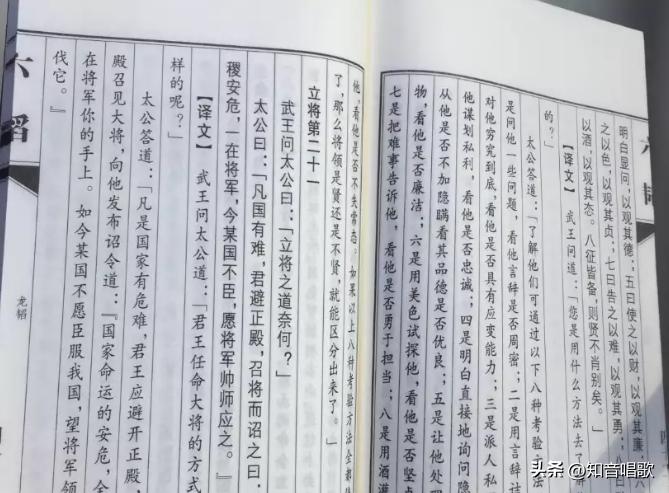 六韬
明白显问,以观其德;五曰使之以财,以观其廉;
之以色,以观其贞;七曰告之以难,以观其勇;
以酒,以观其态。八征皆备,则贤不肖别矣。」
【译文】 武王问道:「您是用什么方法去了
的?」
太公答道:「了解他们可通过以下八种考验方法
是问他一些问题,看他言辞是否周密;二是用言辞诘
对他穷究到底,看他是否具有应变能力;三是派人私
他谋划私利,看他是否忠诚;四是明白直接地询问隐
从他是否不加隐瞒看其品德是否优良;五是让他处
物,看他是否廉洁;六是用美色试探他,看他是否坚贞
七是把难事告诉他,看他是否勇于担当;八是用酒灌
他,看他是否不失常态。如果以上八种考验方法全都
了,那么将领是贤还是不贤,就能区分出来了。」
立将第二十一
武王问太公曰:「立将之道奈何?」
太公曰:「凡国有难,君避正殿,召将而诏之曰:
稷安危,一在将军,今某国不臣,愿将军帅师应之。』
【译文】 武王问太公道:「君王任命大将的方式
样的呢?」
太公答道:「凡是国家有危难,君王应避开正殿,
殿召见大将,向他发布诏令道:『国家命运的安危,全
在将军你的手上。如今某国不愿臣服我国,望将军领
伐它。』
六韬
龙韬
头条 @知音唱歌